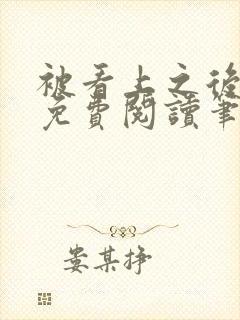 被看上之後
免費閱讀筆
娄某掙